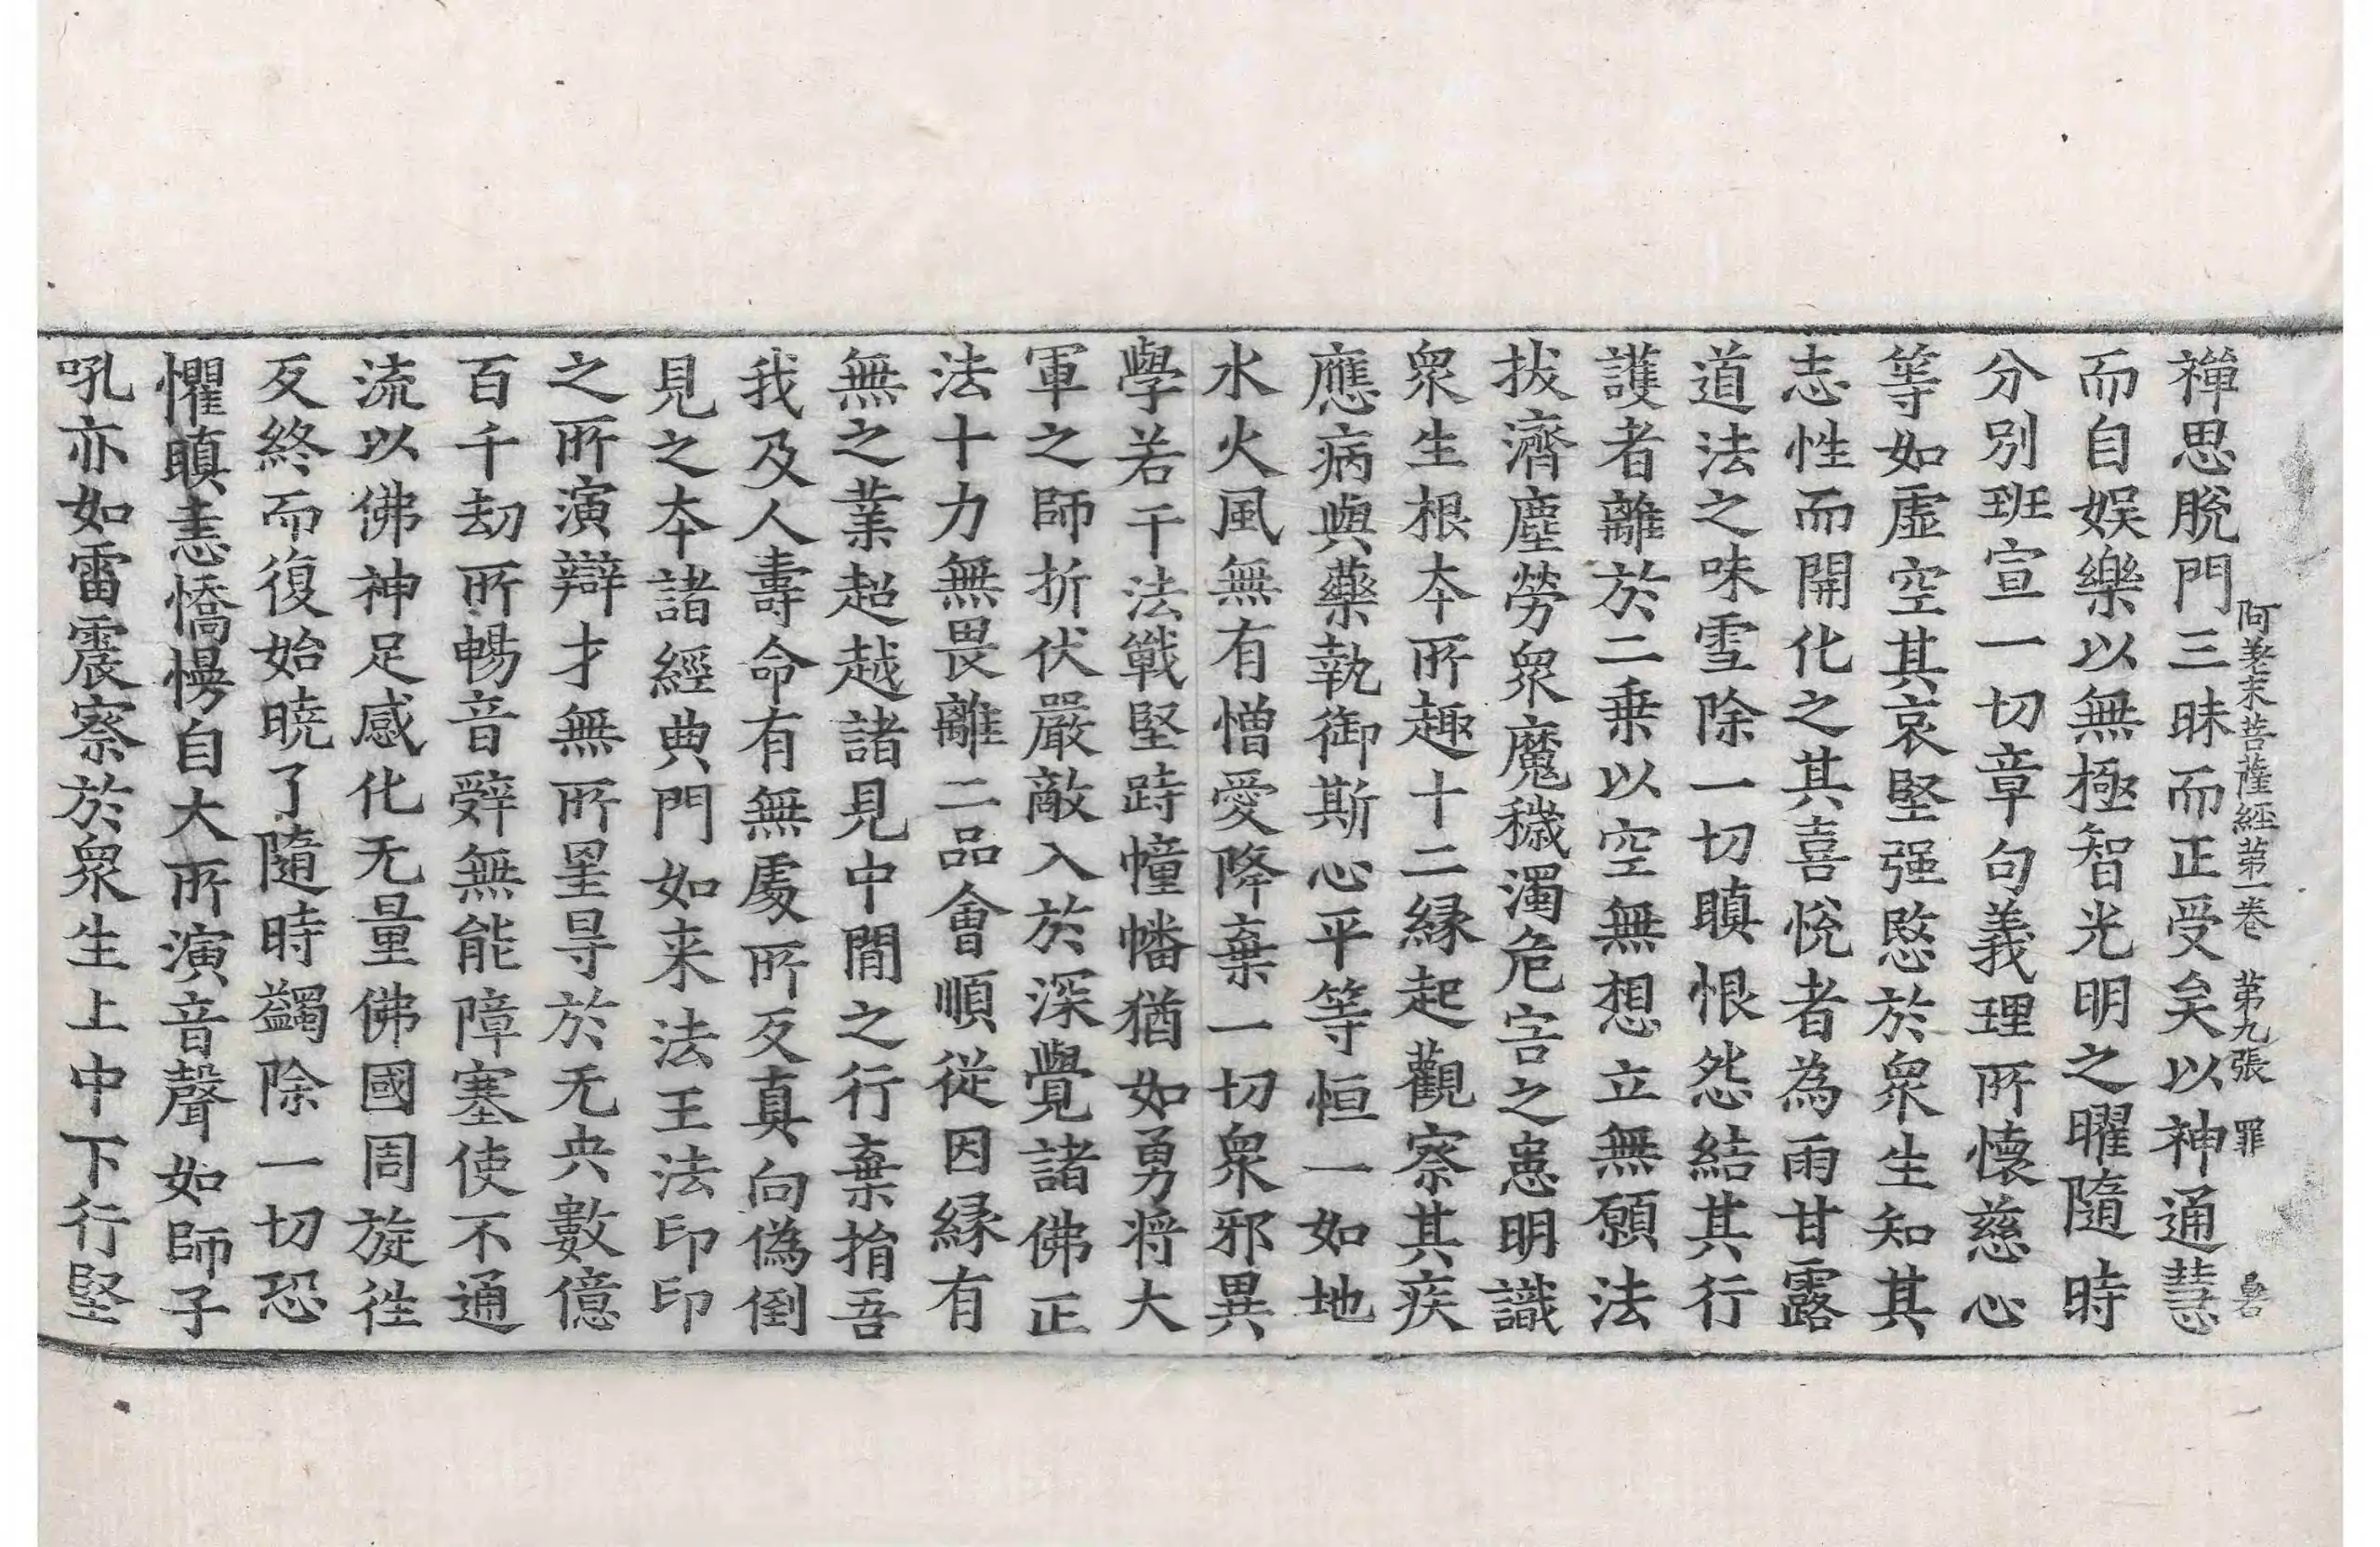 阿差末菩薩經第一卷 第九張 罪
禪思脫門三昧而正受矣以神通慧
而自娛樂以無極智光明之曜隨時
分別班宣一切章句義理所懷慈心
等如虛空其哀堅强愍於衆生知其
志性而開化之其喜悅者為雨甘露
道法之味雪除一切瞋恨怨結其行
護者離於二乗以空無想立無願法
拔濟塵勞衆魔穢濁危害之患明識
衆生根本所趣十二縁起觀察其疾
應病與藥執御斯心平等恒一如地
水火風無有憎愛降棄一切衆邪異
學若干法戰堅跱幢幡猶如勇将大
軍之師折伏嚴敵入於深覺諸佛正
法十力無畏離二品會順從因縁有
無之業超越諸見中間之行棄捐吾
我及人壽命有無處所反真向偽倒
見之本諸經典門如来法王法印印
之所演辯才無所罣㝵於无央數億
百千劫所暢音辤無能障塞使不通
流以佛神足感化无量佛國周旋往
反終而復始曉了隨時蠲除一切恐
懼瞋恚憍慢自大所演音聲如師子
吼亦如雷震察於衆生上中下行堅